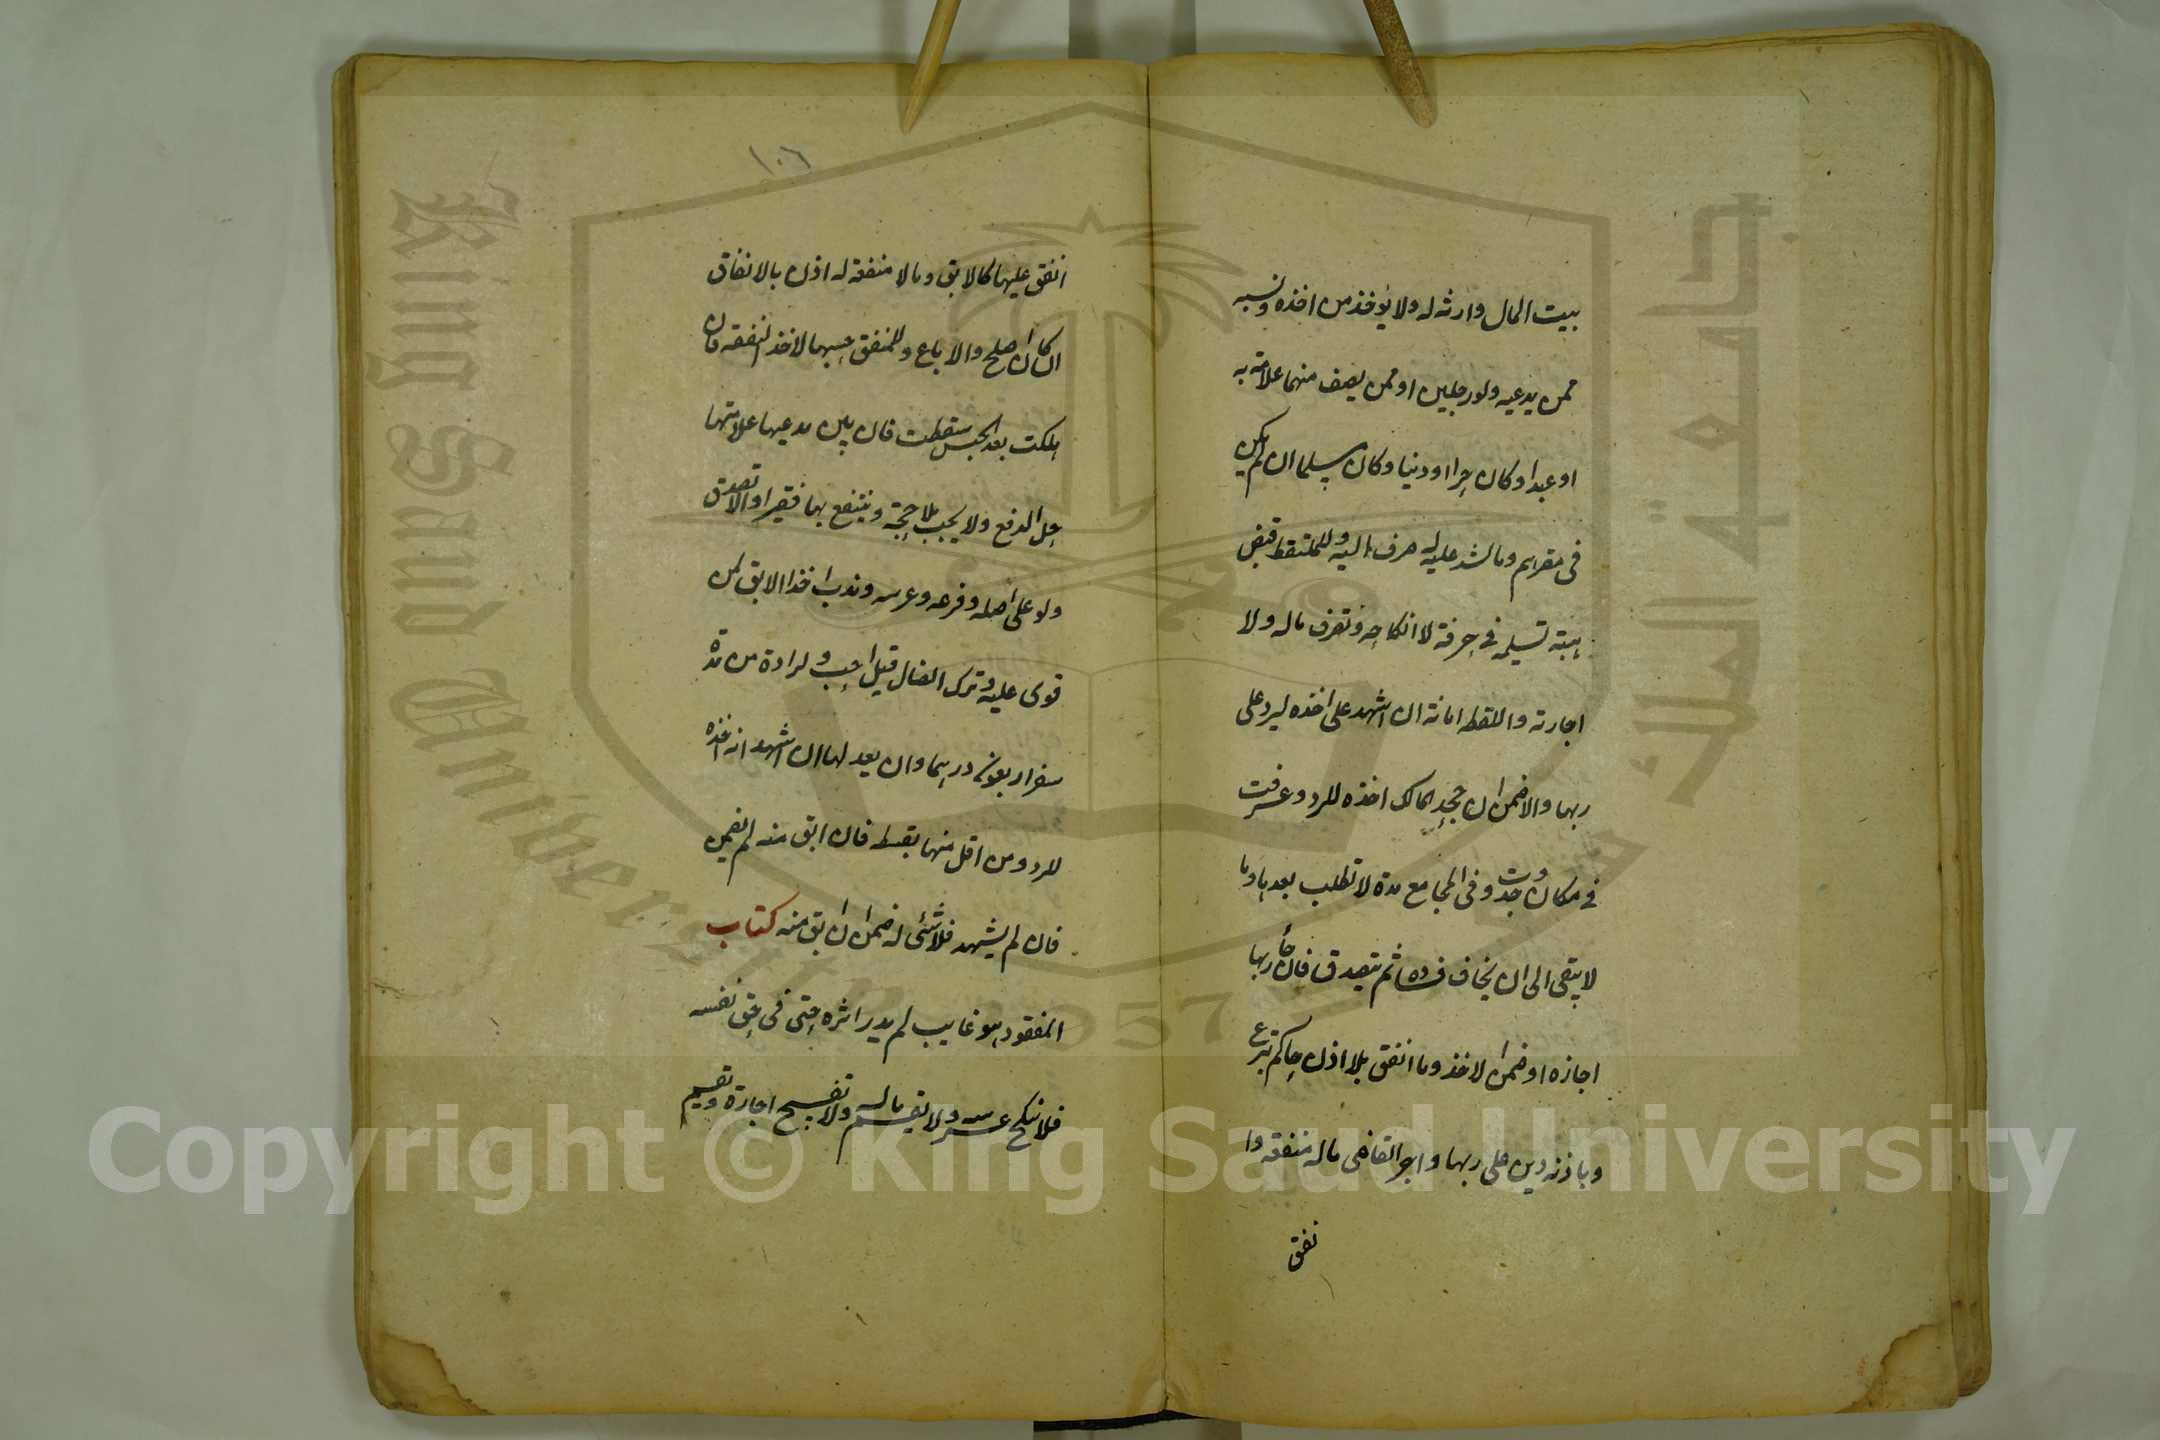 بيت المال وارثه له ولا يؤخذ من اخذه ونسبه
ممن يدعيه ولو رجلين او ممن يصف منهما علامة به
او عبدا وكان حرا او دنيا وكان مسلما ان لم يكن
فى مقرهم وما شد عليه له صرف اليه وللملتقط قبض
هبته تسليمه فى حرفة لا انكاحه وتصرف ماله ولا
اجارته واللقطه امانة ان اشهد على اخذه ليرد على
ربها والا ضمن ان جحد المالك اخذه للرد وعرفت
فى مكان وجدت وفى المجامع مدة لا تطلب بعدها وما
لا يبقى الى ان يخاف فساده ثم يتصدق فان جاء ربها
اجازه او ضمن الاخذ وما انفق بلا اذن حاكم تبرع
وباذنه دين على ربها واجر القاضى ماله منفعة وا
نفق
١٠٦
انفق عليها كالابق وما لا منفعة له اذن بالانفاق
ان كان اصلح والا باع وللمنفق حبسها لاخذ النفقه فان
هلكت بعد الحبس سقطت فان بين مدعيها علامتها
حل الدفع ولا يجب بلا حجة وينتفع بها فقيرا والا تصدق
ولو على اصله وفرعه وعرسه وندب اخذ الابق لمن
قوى عليه وترك الضال قيل احب ولراده من مدة
سفر اربعون درهما وان يعدلها ان اشهد انه اخذه
للرد ومن اقل منها بقسطه فان ابق منه لم يضمن
فان لم يشهد فلا شئى له ضمن ان ابق منه كتاب
المفقود هو غايب لم يدر اثره حتى فى حق نفسه
فلا تنكح عرسه ولا يقسم ماله ولا تفسح اجارة ويقيم
Copyright © King Saud University
King Saud University
جامعة الملك سعود
1957